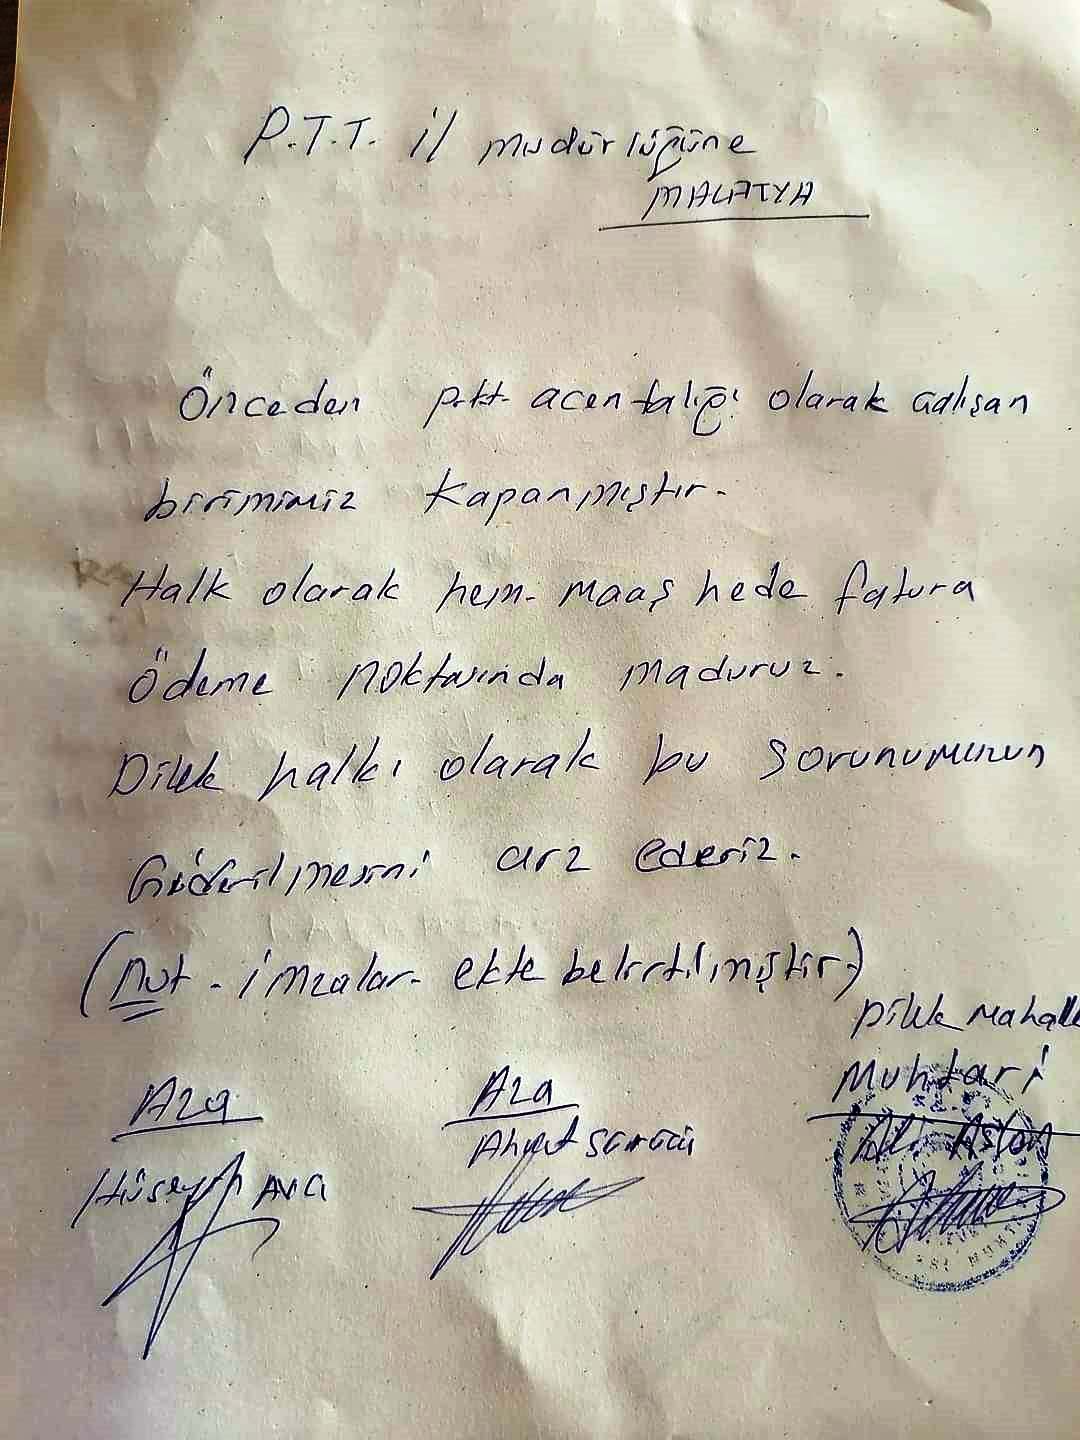 P.T.T. il müdürlüğüne
MALATYA
Önceden p.tt. acentalığı olarak çalışan
birimimiz kapanmıştır.
Halk olarak hem maaş hede fatura
Ödeme noktasında maduruz.
Dilek halkı olarak bu sorunumuzun
Giderilmesini arz ederiz.
(Not. imzalar ekte belirtilmiştir.)
Dilek Mahalle
Muhtarı
Aza Aza
Ali Aslan
Hüseyin Avcı Ahmet Sürücü